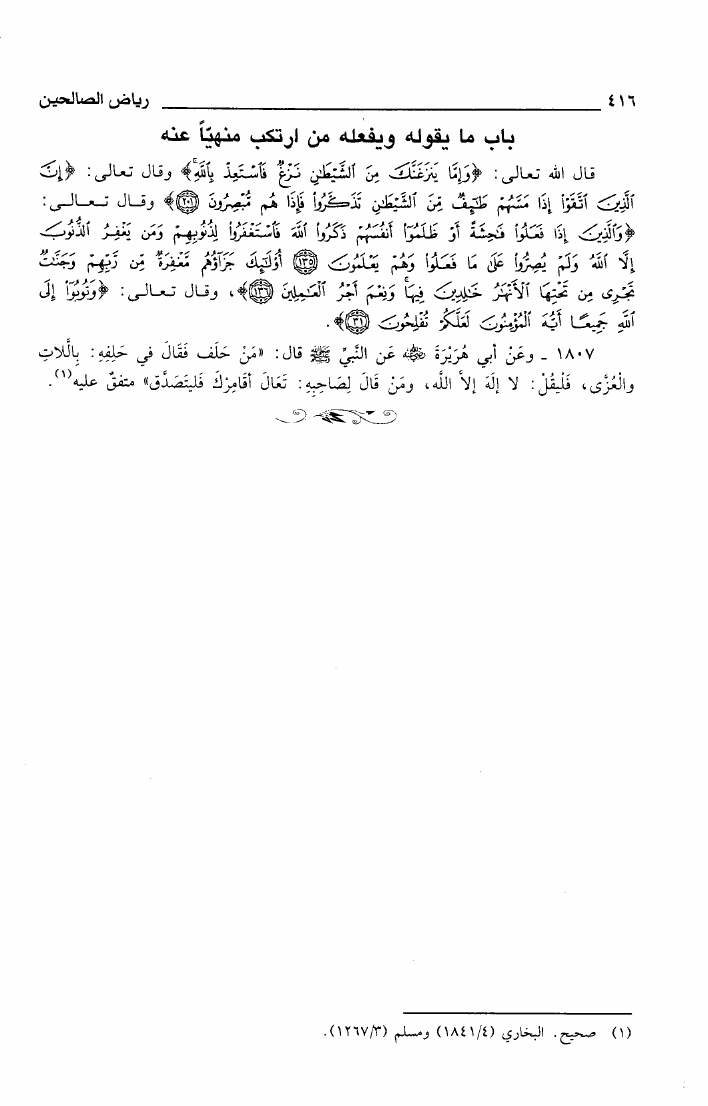 ٤١٦ رياض الصالحين
باب ما يقوله ويفعله من ارتكب منهيّاً عنه
قال الله تعالى: ﴿وَإِمَّا يَنزَغَنَّكَ مِنَ الشَّيْطَٰنِ نَزْغٌ فَاسْتَعِذْ بِاللَّهِ﴾ وقال تعالى: ﴿إِنَّ
الَّذِينَ اتَّقَوْا إِذَا مَسَّهُمْ طَٰٓئِفٌ مِّنَ الشَّيْطَٰنِ تَذَكَّرُوا فَإِذَا هُم مُّبْصِرُونَ ﴿٢٠١﴾﴾ وقال تعالى:
﴿وَالَّذِينَ إِذَا فَعَلُوا فَٰحِشَةً أَوْ ظَلَمُوا أَنفُسَهُمْ ذَكَرُوا اللَّهَ فَاسْتَغْفَرُوا لِذُنُوبِهِمْ وَمَن يَغْفِرُ الذُّنُوبَ
إِلَّا اللَّهُ وَلَمْ يُصِرُّوا عَلَىٰ مَا فَعَلُوا وَهُمْ يَعْلَمُونَ ﴿١٣٥﴾ أُولَٰٓئِكَ جَزَآؤُهُم مَّغْفِرَةٌ مِّن رَّبِّهِمْ وَجَنَّٰتٌ
تَجْرِي مِن تَحْتِهَا الْأَنْهَٰرُ خَٰلِدِينَ فِيهَا وَنِعْمَ أَجْرُ الْعَٰمِلِينَ ﴿١٣٦﴾﴾، وقال تعالى: ﴿وَتُوبُوٓا إِلَى
اللَّهِ جَمِيعًا أَيُّهَ الْمُؤْمِنُونَ لَعَلَّكُمْ تُفْلِحُونَ ﴿٣١﴾﴾.
١٨٠٧ ـ وعَنْ أبي هُرَيْرَةَ رضي الله عنه عَن النبيِّ ﷺ قال: «مَنْ حَلَف فَقَالَ في حَلِفِهِ: بِاللَّاتِ
والْعُزَّى، فَلْيقُلْ: لا إلَهَ إلاَّ اللَّه، ومَنْ قَالَ لِصَاحِبِهِ: تَعَالَ أقَامِرْكَ فَليتَصَدَّق» متفقٌ عليه(١).
(١) صحيح. البخاري (١٨٤١/٤) ومسلم (١٢٦٧/٣).